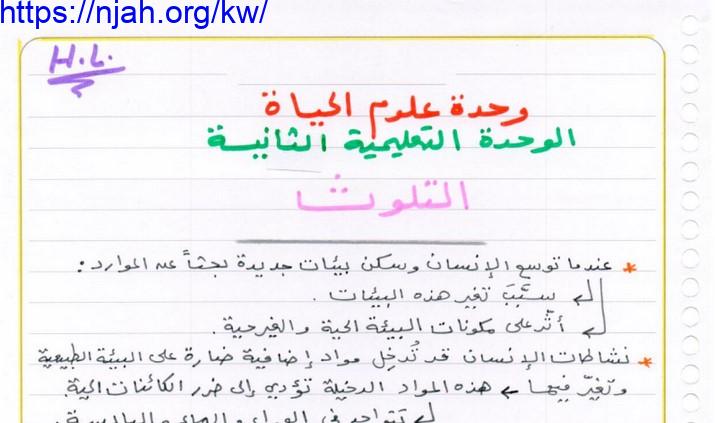 https://njah.org/kw/
H.L.
وحدة علوم الحياة
الوحدة التعليمية الثانية
التلوث
* عندما توسع الإنسان وسكن بيئات جديدة بحثاً عن الموارد :
↲ سبَّبَ تغير هذه البيئات .
↲ أثَّر على مكونات البيئة الحية والغير حية .
* نشاطات الإنسان قد تُدخِل مواد إضافية ضارة على البيئة الطبيعية
وتغيِّر فيها ← هذه المواد الدخيلة تؤدي إلى ضرر الكائنات الحية.
↲ تتواجد في الهواء والماء واليابسة .